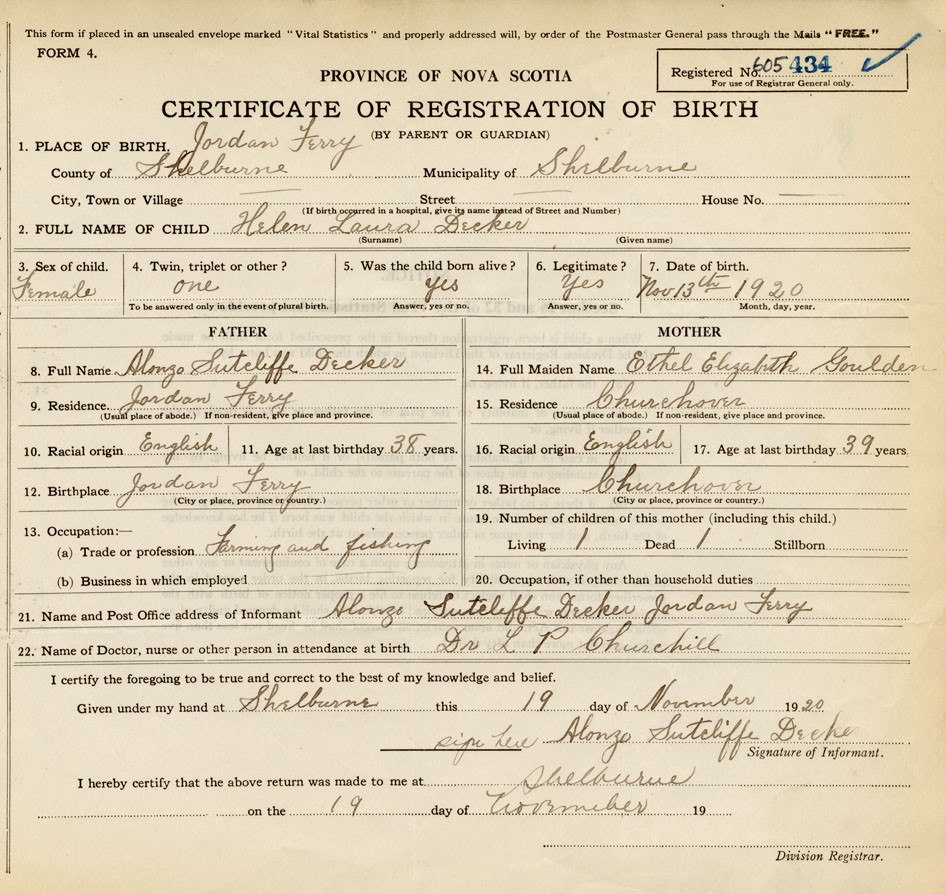 This form if placed in an unsealed envelope marked "Vital Statistics" and properly addressed will, by order of the Postmaster General pass through the Mails "FREE."
FORM 4.
PROVINCE OF NOVA SCOTIA
Registered No. 605 434
For use of Registrar General only.
CERTIFICATE OF REGISTRATION OF BIRTH
(BY PARENT OR GUARDIAN)
1. PLACE OF BIRTH. Jordan Ferry
County of Shelburne Municipality of Shelburne
City, Town or Village Street House No.
(If birth occurred in a hospital, give its name instead of Street and Number)
2. FULL NAME OF CHILD Helen Laura Decker
(Surname) (Given name)
3. Sex of child. 4. Twin, triplet or other? 5. Was the child born alive? 6. Legitimate? 7. Date of birth.
Female one yes Yes Nov 13th 1920
To be answered only in the event of plural birth. Answer, yes or no. Answer, yes or no. Month, day, year.
FATHER MOTHER
8. Full Name Alonzo Sutcliffe Decker 14. Full Maiden Name Ethel Elizabith Goulden
9. Residence. Jordan Ferry 15. Residence Churchover
(Usual place of abode.) If non-resident, give place and province. (Usual place of abode.) If non-resident, give place and province.
10. Racial origin English 11. Age at last birthday 38 years. 16. Racial origin English 17. Age at last birthday 39 years
12. Birthplace Jordan Ferry 18. Birthplace Churchover
(City or place, province or country.) (City or place, province or country.)
13. Occupation:— 19. Number of children of this mother (including this child.)
(a) Trade or profession Farming and fishing Living 1 Dead 1 Stillborn
(b) Business in which employed 20. Occupation, if other than household duties
21. Name and Post Office address of Informant Alonzo Sutcliffe Decker Jordan Ferry
22. Name of Doctor, nurse or other person in attendance at birth Dr L P Churchill
I certify the foregoing to be true and correct to the best of my knowledge and belief.
Given under my hand at Shelburne this 19 day of November 1920
sign here Alonzo Sutcliffe Decker
Signature of Informant.
I hereby certify that the above return was made to me at Shelburne
on the 19 day of November 19
Division Registrar.